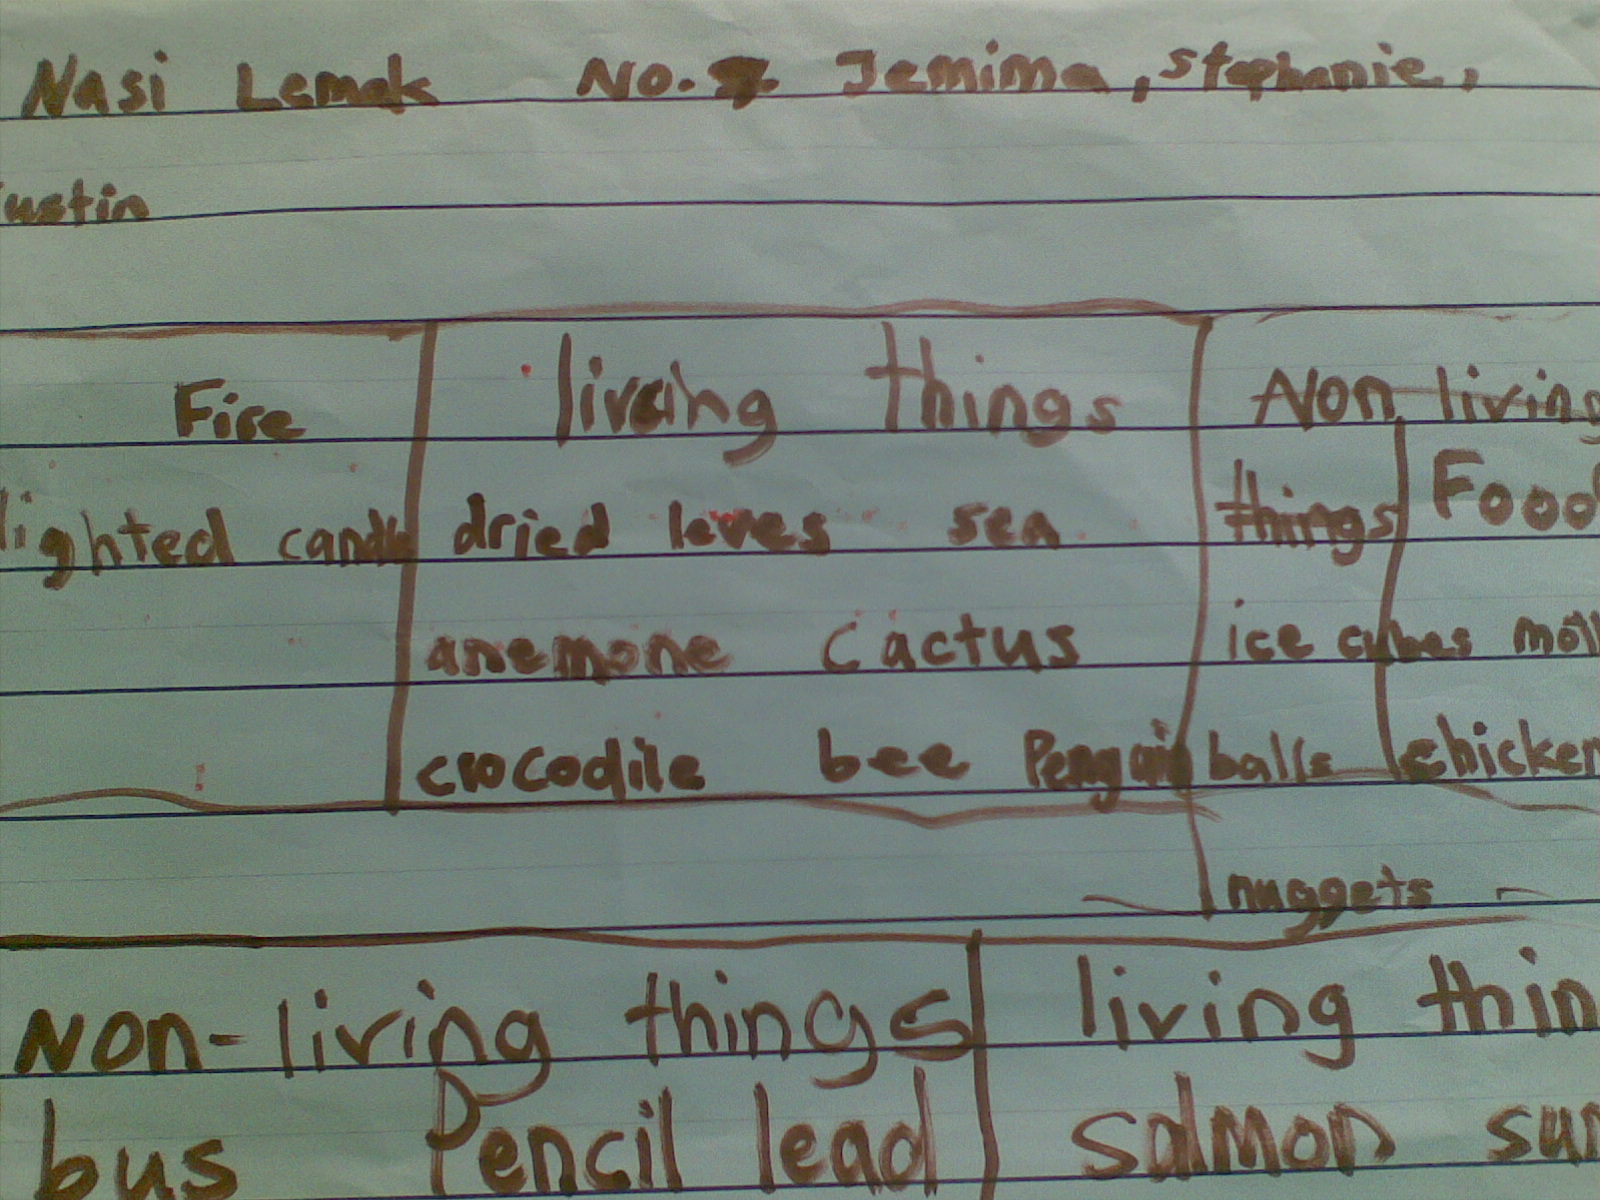 Nasi Lemak No. Jemima, Stephanie,
ustin
Fire living things Non living
lighted candle dried leves sea things Food
anemone Cactus ice cubes
crocodile bee Penguin balls chicken
nuggets
Non-living things living thin
bus Pencil lead salmon sun